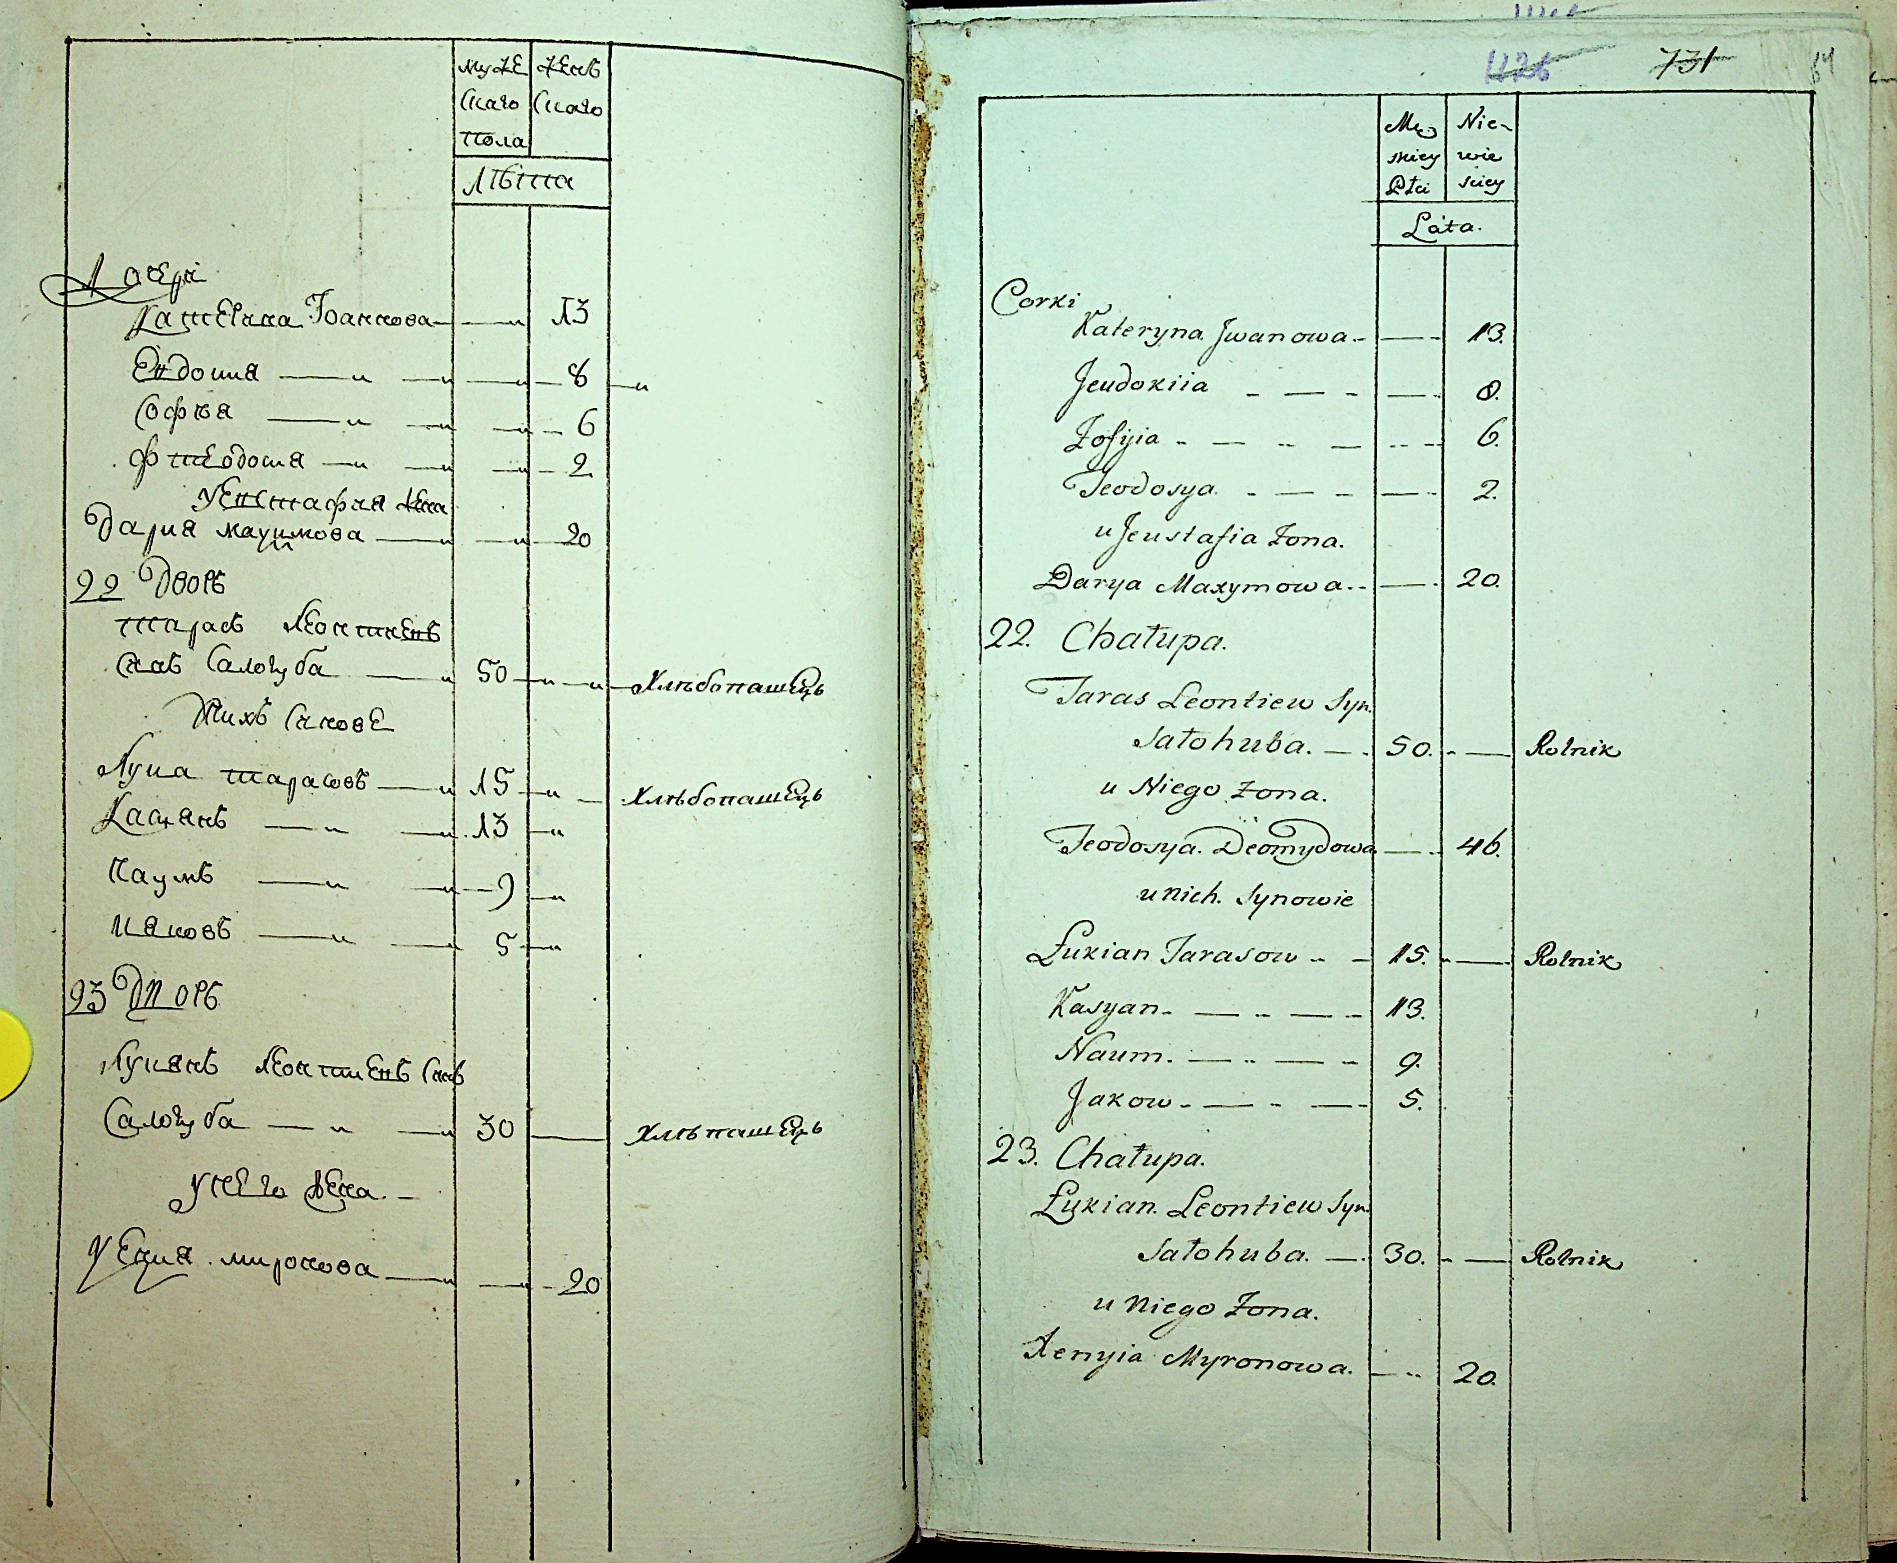 муже женѣ
скаго скаго
пола
Лѣта
Дочерѣ
Катерина Іоаннова 13
Евдокия 8
Софія 6
Фтеодосия 2
У Евстафия жена
Дария Махимова 20
22 Дворъ
Тарасъ Леонтиевъ
синъ Салогуба 50 Хлѣбопашецъ
У них синове
Лука Тарасовъ 15 Хлѣбопашецъ
Касиянъ 13
Наумъ 9
Иаковъ 5
23 Дворъ
Лукиянъ Леонтиевъ синъ
Салогуба 30 Хлѣпашецъ
У него жена
Ксения Миронова 20
1126 731 64
Mę Nie-
skiey wie
Płci sciey
Láta.
Corki
Kateryna Jwanowa 13.
Jeudokiia 8.
Zofyia 6.
Teodosya 2.
u Jeustafia Zona.
Darya Maxymowa 20.
22. Chałupa.
Taras Leontiew Syn.
Sałohuba. 50. Rolnik
u Niego Zona.
Teodosya Deomydowa 46.
u nich. Synowie
Łukian Tarasow 15. Rolnik
Kasyan 13.
Naum. 9.
Jakow 5.
23. Chałupa.
Łukian. Leontiew Syn.
Sałohuba. 30. Rolnik
u niego Zona.
Xenyia Myronowa. 20.